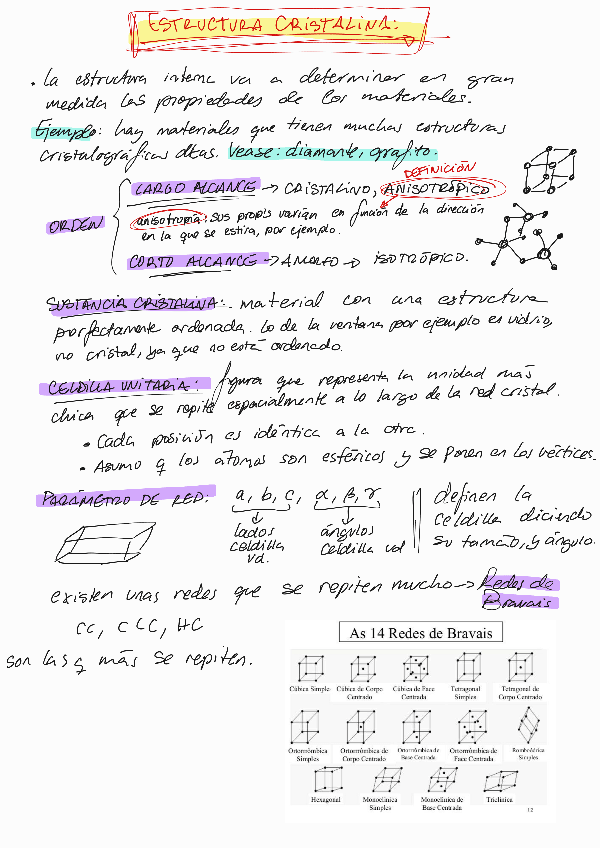 ESTRUCTURA CRISTALINA:
• La estructura interna va a determinar en gran
medida las propiedades de los materiales.
Ejemplo: hay materiales que tienen muchas estructuras
cristalográficas dtas. Vease: diamante, grafito.
DEFINICIÓN
LARGO ALCANCE → CRISTALINO, ANISOTRÓPICO
ORDEN
anisotropía: sus propds varían en función de la dirección
en la que se estira, por ejemplo.
CORTO ALCANCE → AMORFO → ISOTRÓPICO.
SUSTANCIA CRISTALINA: material con una estructura
perfectamente ordenada. Lo de la ventana por ejemplo es vidrio,
no cristal, ya que no está ordenado.
CELDILLA UNITARIA: figura que representa la unidad más
chica que se repite espacialmente a lo largo de la red cristal.
• Cada posición es idéntica a la otra.
• Asumo q los átomos son esféricos y se ponen en los véctices.
PARÁMETRO DE RED: a, b, c, α, β, γ
lados celdilla vd.
ángulos celdilla vd
definen la
celdilla diciendo
su tamaño, y ángulo.
existen unas redes que se repiten mucho → Redes de
Bravais
CC, CCC, HC
son las q más se repiten.
As 14 Redes de Bravais
Cúbica Simple Cúbica de Corpo Centrado Cúbica de Face Centrada Tetragonal Simples Tetragonal de Corpo Centrado
Ortorrômbica Simples Ortorrômbica de Corpo Centrado Ortorrômbica de Base Centrada Ortorrômbica de Face Centrada Romboédrica Simples
Hexagonal Monoclínica Simples Monoclínica de Base Centrada Triclínica
12